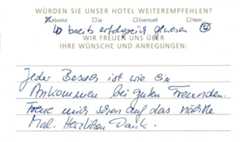 WÜRDEN SIE UNSER HOTEL WEITEREMPFEHLEN?
bereits erfolgreich gewesen
WIR FREUEN UNS ÜBER
IHRE WÜNSCHE UND ANREGUNGEN:
Jeder Besuch ist wie ein
Ankommen bei guten Freunden.
Freue mich schon auf das nächste
Mal. Herzlichen Dank